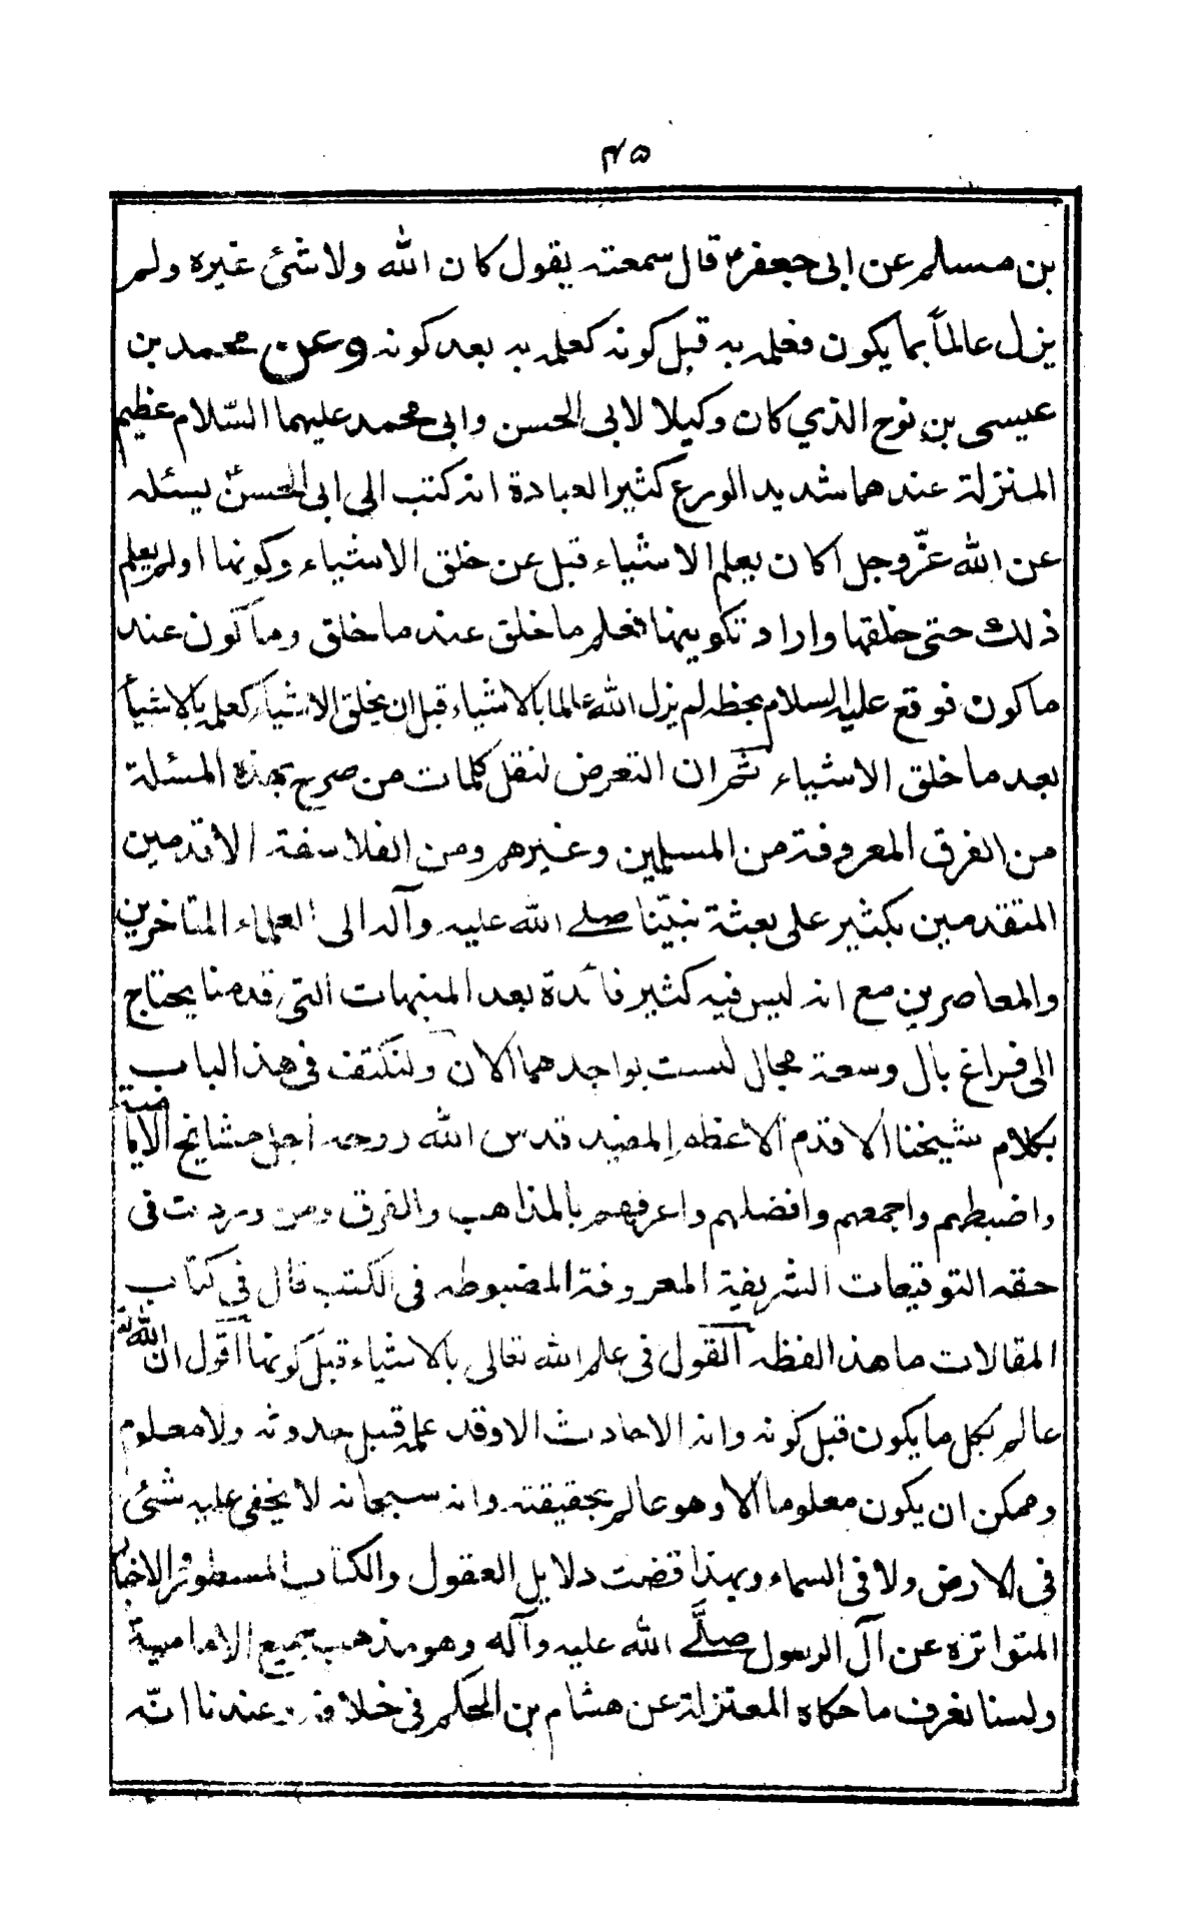 ٤٥
بن مسلم عن ابى جعفر ع قال سمعته يقول كان الله ولا شئ غيره ولم
يزل عالماً بما يكون فعلمه به قبل كونه كعلمه به بعد كونه وعن محمد بن
عيسى بن نوح الذي كان وكيلا لابى الحسن وابى محمد عليهما السّلام عظيم
المنزلة عندهما شديد الورع كثير العبادة انه كتب الى ابى الحسن ع يسئله
عن الله عزّ وجل اكان يعلم الاشياء قبل عن خلق الاشياء وكونها اولم يعلم
ذلك حتى خلقها واراد تكوينها فعلم ما خلق عند ما خلق وما كون عند
ما كون فوقع عليه السلام بخطه لم يزل الله عالما بالاشياء قبل ان يخلق الاشياء كعلمه بالاشيأ
بعد ما خلق الاشياء ثم ان التعرض لنقل كلمات من صرح بهذه المسئلة
من الفرق المعروفة من المسلمين وغيرهم ومن الفلاسفة الاقدمين
المتقدمين بكثير على بعثة نبيّنا صلے الله عليه وآله الى العلماء المتاخرين
والمعاصرين مع انه ليس فيه كثير فائدة بعد المنبهات التى قدمنا يحتاج
الى فراغ بال وسعة مجال لست بواجدهما الان ولنكتف فى هذ الباب
بكلام شيخنا الاقدم الاعظم المفيد قدس الله روحه اجل مشايخ الاماميه
واضبطهم واجمعهم وافضلهم واعرفهم بالمذاهب والفرق ومن وردت فى
حقه التوقيعات الشريفة المعروفة المضبوطه فى الكتب قال فى كتاب
المقالات ما هذ الفظه القول فى علم الله تعالى بالاشياء قبل كونها اقول ان الله تع
عالم بكل ما يكون قبل كونه وانه لا حادث الا وقد علمه قبل حدوثه ولا معلوم
وممكن ان يكون معلوما الا وهو عالم بحقيقته وانه سبحانه لا يخفى عليه شئ
فى الارض ولا فى السماء وبهذا قضت دلايل العقول والكتاب المسطور والاخبار
المتواتره عن آل الرسول صلَّے الله عليه وآله وهو مذهب جميع الامامية
ولسنا نعرف ما حكاه المعتزلة عن هشام بن الحكم فى خلافه وعندنا انّه